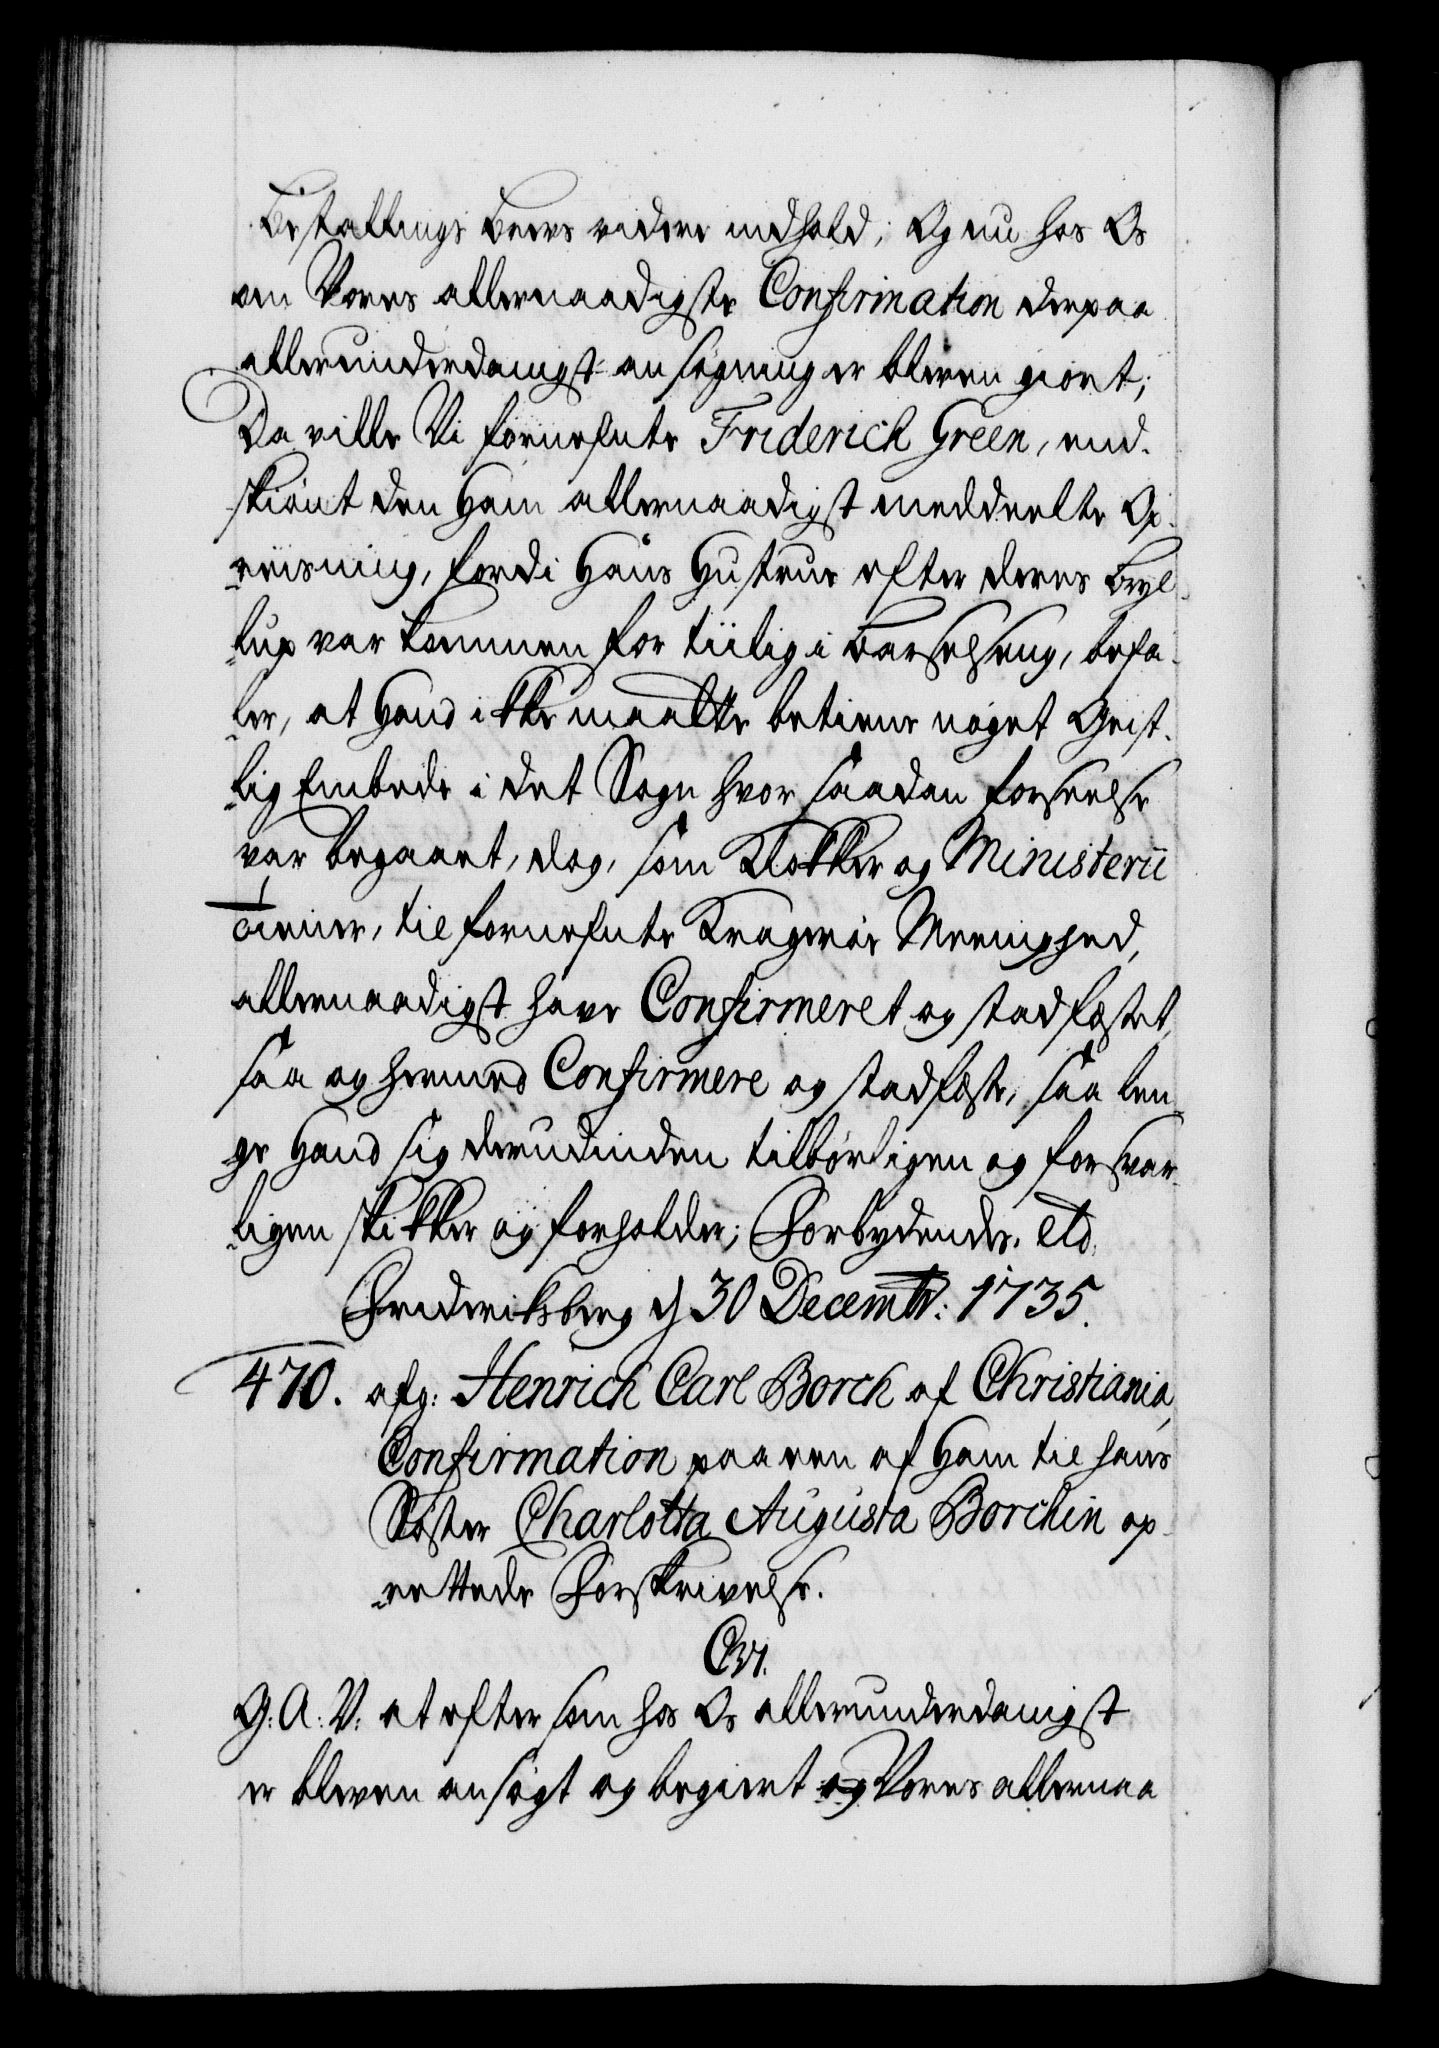 Bestallings Brevs videre indhold; Og nu hos Os
om Vores allernaadigste Confirmation derpaa
allerunderdanigst ansøgning er bleven giort;
Da ville Vi fornefnte Friderich Green, end-
skiönt den Ham allernaadigst meddeelte Op-
reisning, fordi Hans Hustrue efter deres Bryl-
lup var kommen for tiilig i Barselseng, befa-
ler, at Hand ikke maatte betiene noget Geist-
lig Embede i det Sogn hvor saadan forseelse
var begaaet, dog, som Klokker og Ministerii
Tiener, til fornefnte Kragerøe Meenighed,
allernaadigst have Confirmeret og stadfæstet,
saa og hermed Confirmere og stadfæste, saa len-
ge Hand sig derudinden tilbørligen og forsvar-
ligen skikker og forholder; Forbydendes. etc.
Friderichsberg d 30 Decembr: 1735.
470. afg: Henrich Carl Borch af Christiania,
Confirmation paa een af Ham til hans
Søster Charlotta Augusta Borchin op-
rettede Forskrivelse.
C VI.
G: A: V: at eftersom hos Os allerunderdanigst
er bleven ansøgt og begiert og Vores allernaa